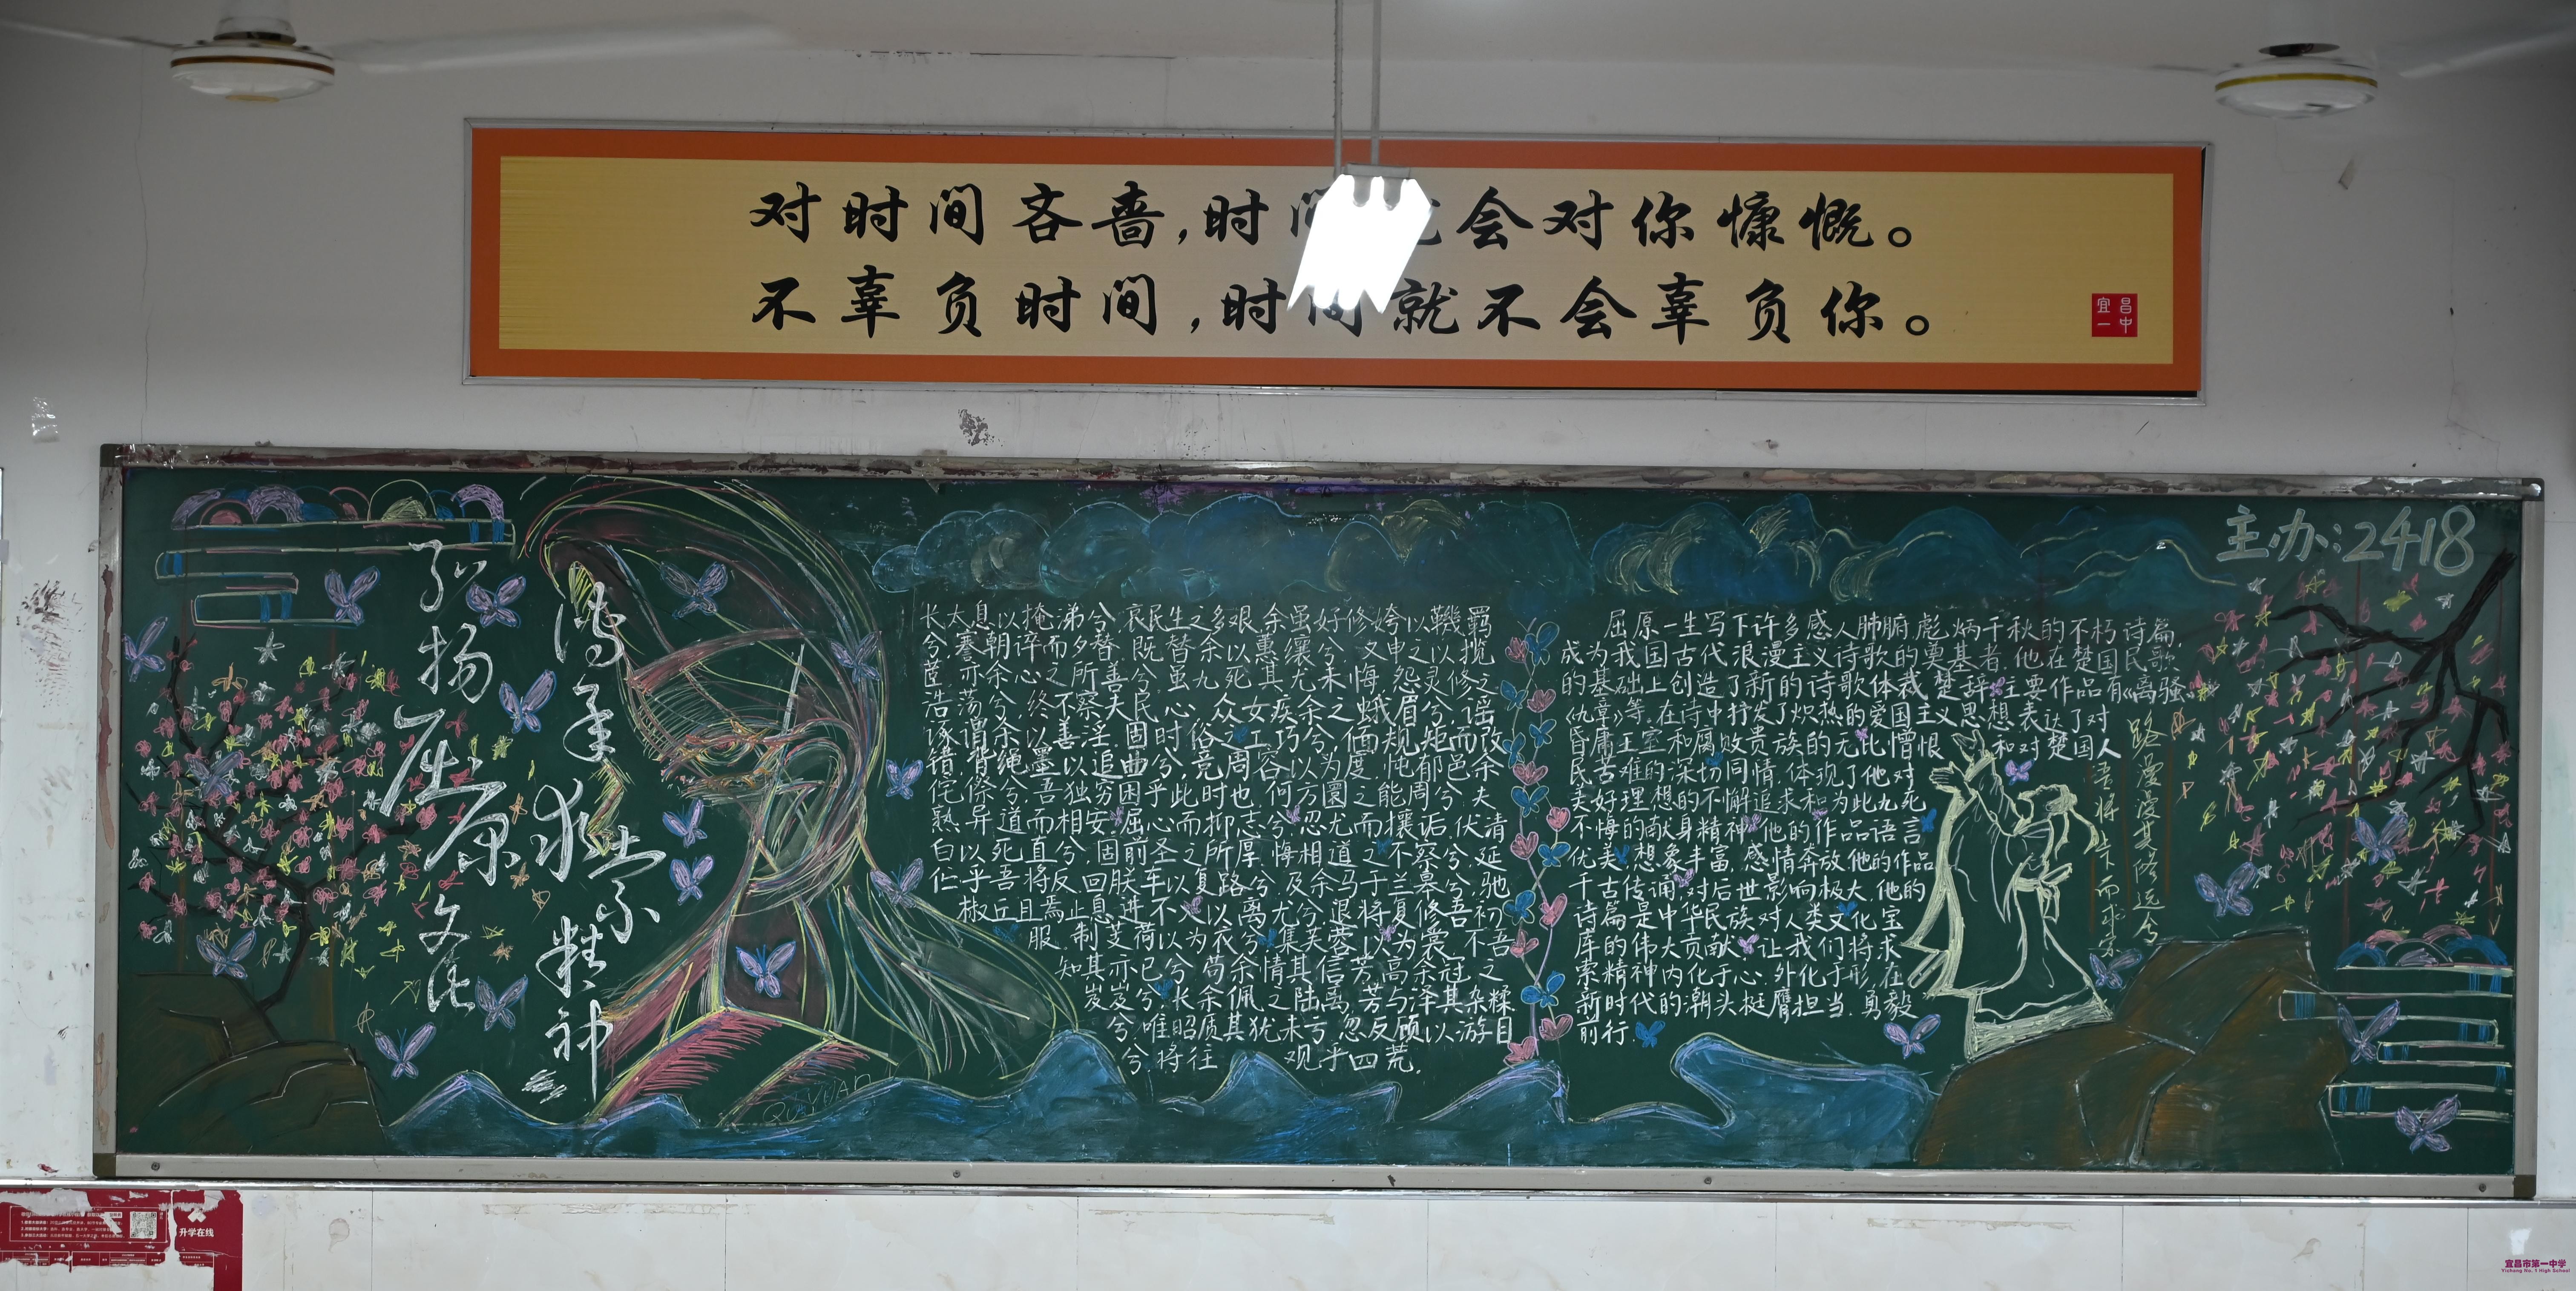 对时间吝啬,时间 会对你慷慨。
不辜负时间,时间就不会辜负你。
宜昌
一中
主办:2418
弘扬屈原文化
传承求索精神
长太息以掩涕兮,哀民生之多艰。余虽好修姱以鞿羁
兮,謇朝谇而夕替。既替余以蕙纕兮,又申之以揽
茝。亦余心之所善兮,虽九死其尤未悔。怨灵修之
浩荡兮,终不察夫民心。众女疾余之蛾眉兮,谣
诼谓余以善淫。固时俗之工巧兮,偭规矩而改
错。背绳墨以追曲兮,竞周容以为度。忳郁邑余
侘傺兮,吾独穷困乎此时也。何方圜之能周兮,夫
孰异道而相安。屈心而抑志兮,忍尤而攘诟。伏清
白以死直兮,固前圣之所厚。悔相道之不察兮,延
伫乎吾将反。回朕车以复路兮,
椒丘且焉止息。进不入以离尤兮,退将复修吾初
服。制芰荷以为衣兮,集芙蓉以为裳。不吾
知其亦已兮,苟余情其信芳。高余冠之
岌岌兮,长余佩之陆离。芳与泽其杂糅
兮,唯昭质其犹未亏。忽反顾以游目
兮,将往观乎四荒。
屈原一生写下许多感人肺腑、彪炳千秋的不朽诗篇,
成为我国古代浪漫主义诗歌的奠基者,他在楚国民歌
的基础上创造了新的诗歌体裁楚辞,主要作品有《离骚》
《九章》等。在诗中抒发了炽热的爱国主义思想,表达了对
昏庸王室和腐败贵族的无比憎恨和对楚国人
民苦难的深切同情,体现了他对
美好理想的不懈追求和为此九死
不悔的献身精神。他的作品语言
优美,想象丰富,感情奔放,他的作品
千古传诵,对后世影响极大,他的
诗篇是中华民族对人类文化宝
库的伟大贡献,让我们将求
索精神内化于心,外化于形,在
新时代的潮头挺膺担当,勇毅
前行。
路漫漫其修远兮
吾将上下而求索
QUYUAN
升学在线
宜昌市第一中学
Yichang No. 1 High School